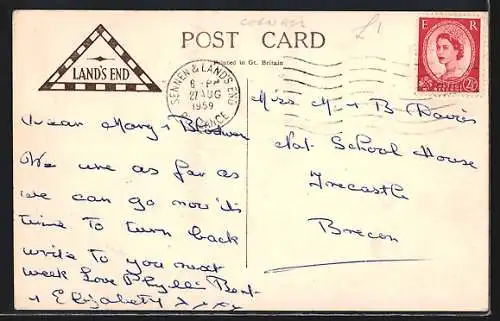 Cornwall
£1
POST CARD
Printed in Gt. Britain
LAND'S END
SENNEN & LAND'S END
PENZANCE
6 - PM
27 AUG
1959
E R
2½D
Dear Mary + Blodwen
We are as far as
we can go now it's
time to turn back
write to you next
week Love Phyllis Bert
+ Elizabeth xxxx
Miss M + B Davies
Nat. School House
Trecastle
Brecon